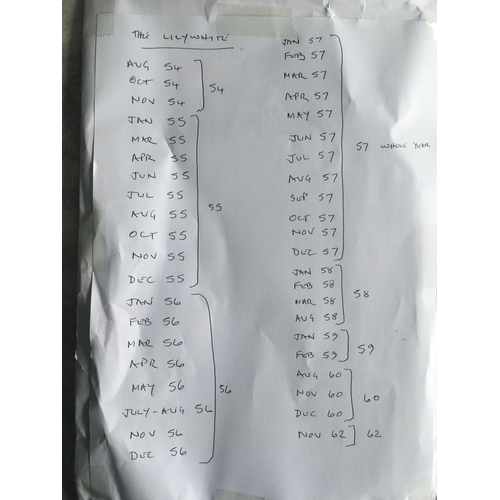 THE LILYWHITE
AUG 54
OCT 54
NOV 54
54
JAN 55
MAR 55
APR 55
JUN 55
JUL 55
AUG 55
OCT 55
NOV 55
DEC 55
55
JAN 56
FEB 56
MAR 56
APR 56
MAY 56
JULY - AUG 56
NOV 56
DEC 56
56
JAN 57
FEB 57
MAR 57
APR 57
MAY 57
JUN 57
JUL 57
AUG 57
SEP 57
OCT 57
NOV 57
DEC 57
57 WHOLE YEAR
JAN 58
FEB 58
MAR 58
AUG 58
58
JAN 59
FEB 59
59
AUG 60
NOV 60
DEC 60
60
NOV 62
62